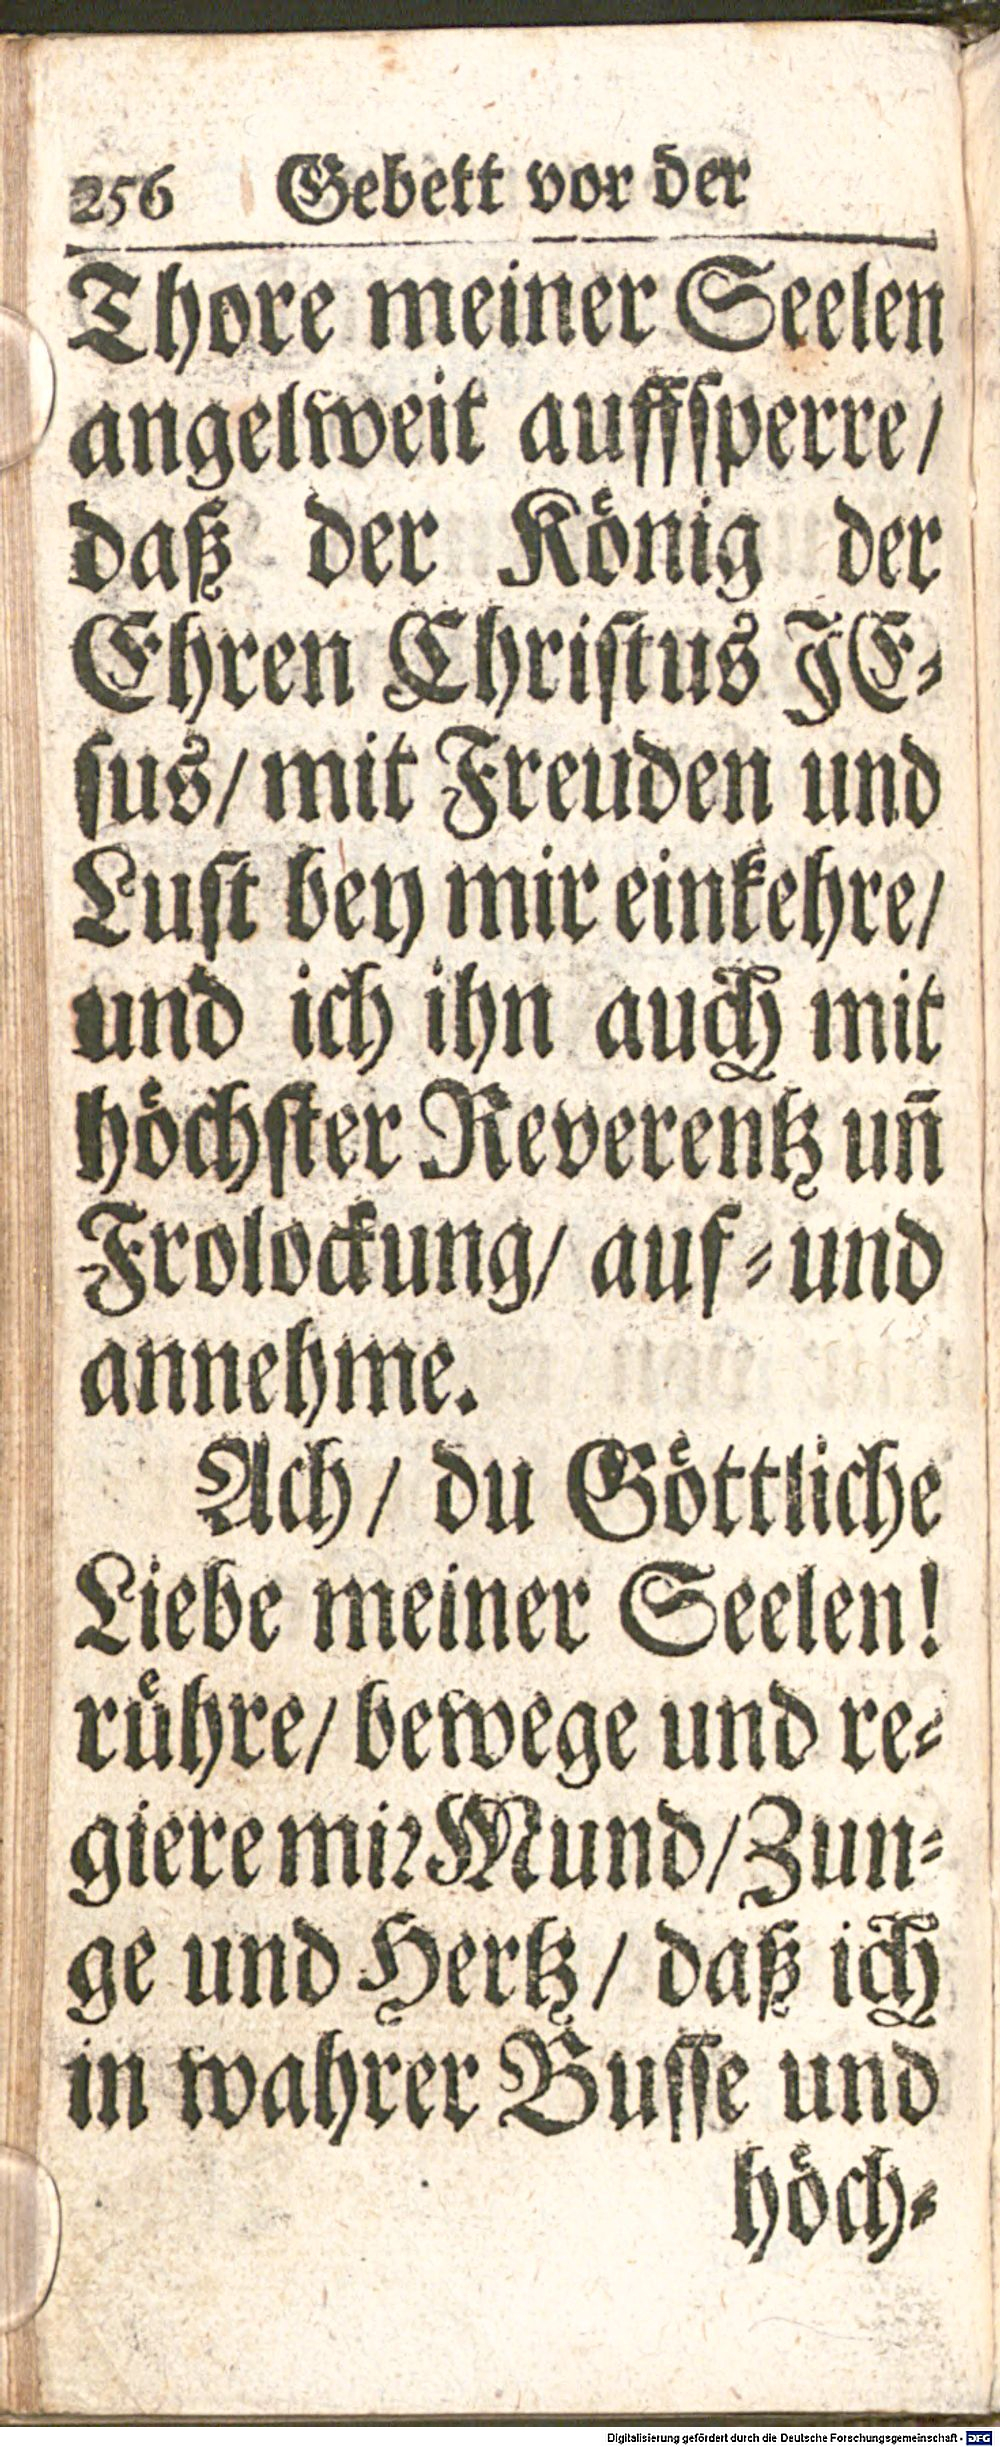 256 Gebett vor der
Thore meiner Seelen
angelweit auffsperre/
daß der König der
Ehren Christus JE-
sus/ mit Freuden und
Lust bey mir einkehre/
und ich ihn auch mit
höchster Reverentz uñ
Frolockung/ auf- und
annehme.
Ach / du Göttliche
Liebe meiner Seelen!
rühre/ bewege und re-
giere mir Mund/ Zun-
ge und Hertz / daß ich
in wahrer Busse und
höch-
Digitalisierung gefördert durch die Deutsche Forschungsgemeinschaft - DFG